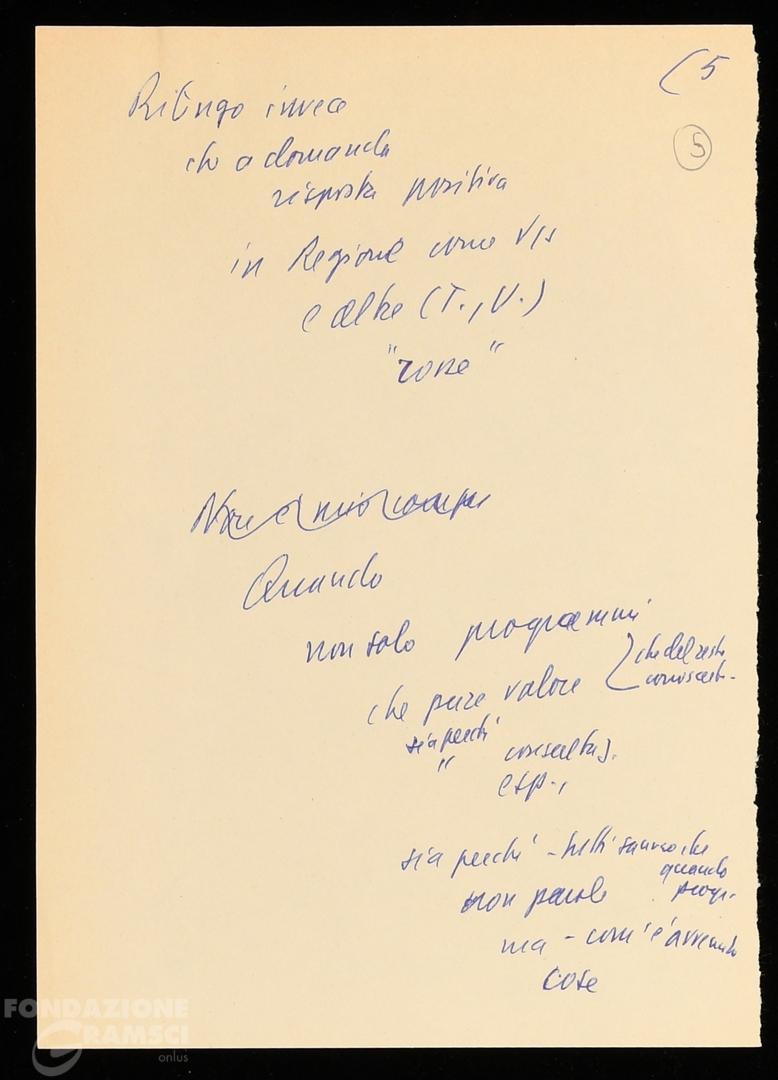 (5
5
Ritengo invece
che a domanda
risposta positiva
in Regione come V/s
e altre (T., V.)
"rosse"
Non è mio
Quando
non solo programmi
che pure valore
che del resto
conoscete-
sia perché
" consultaz.
esp.,
sia perché - tutti sanno che
quando
non parole progr.
ma - com'è avvenuto
cose
FONDAZIONE
GRAMSCI
onlus